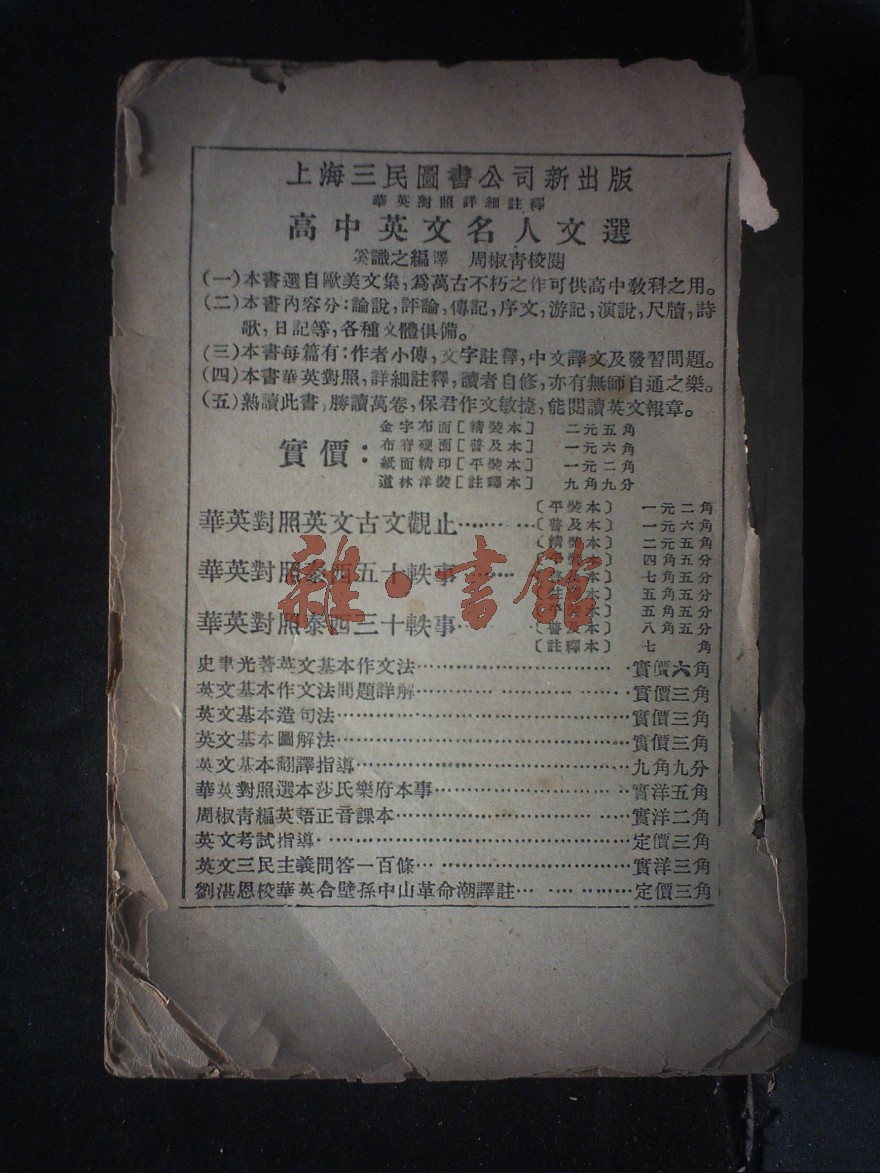 上海三民圖書公司新出版
華英對照詳細註釋
高中英文名人文選
奚識之編譯 周椒青校閱
(一)本書選自歐美文集,爲萬古不朽之作可供高中敎科之用。
(二)本書內容分:論說,評論,傳記,序文,游記,演說,尺牘,詩
歌,日記等,各種文體俱備。
(三)本書每篇有:作者小傳,文字註釋,中文譯文及發習問題。
(四)本書華英對照,詳細註釋,讀者自修,亦有無師自通之樂。
(五)熟讀此書,勝讀萬卷,保君作文敏捷,能閱讀英文報章。
實價:
金字布面〔精裝本〕 二元五角
布脊硬面〔普及本〕 一元六角
紙面精印〔平裝本〕 一元二角
道林洋裝〔註釋本〕 九角九分
華英對照英文古文觀止………
〔平裝本〕 一元二角
〔普及本〕 一元六角
〔精裝本〕 二元五角
華英對照泰西五十軼事………
四角五分
七角五分
五角五分
華英對照泰西三十軼事…
〔平裝本〕 五角五分
〔普及本〕 八角五分
〔註釋本〕 七 角
史聿光著英文基本作文法………………………實價六角
英文基本作文法問題詳解………………………實價三角
英文基本造句法…………………………………實價三角
英文基本圖解法…………………………………實價三角
英文基本翻譯指導………………………………九角九分
華英對照選本莎氏樂府本事……………………實洋五角
周椒靑編英語正音課本…………………………實洋二角
英文考試指導……………………………………定價三角
英文三民主義問答一百條………………………實洋三角
劉湛恩校華英合壁孫中山革命潮譯註…………定價三角
雜·書館